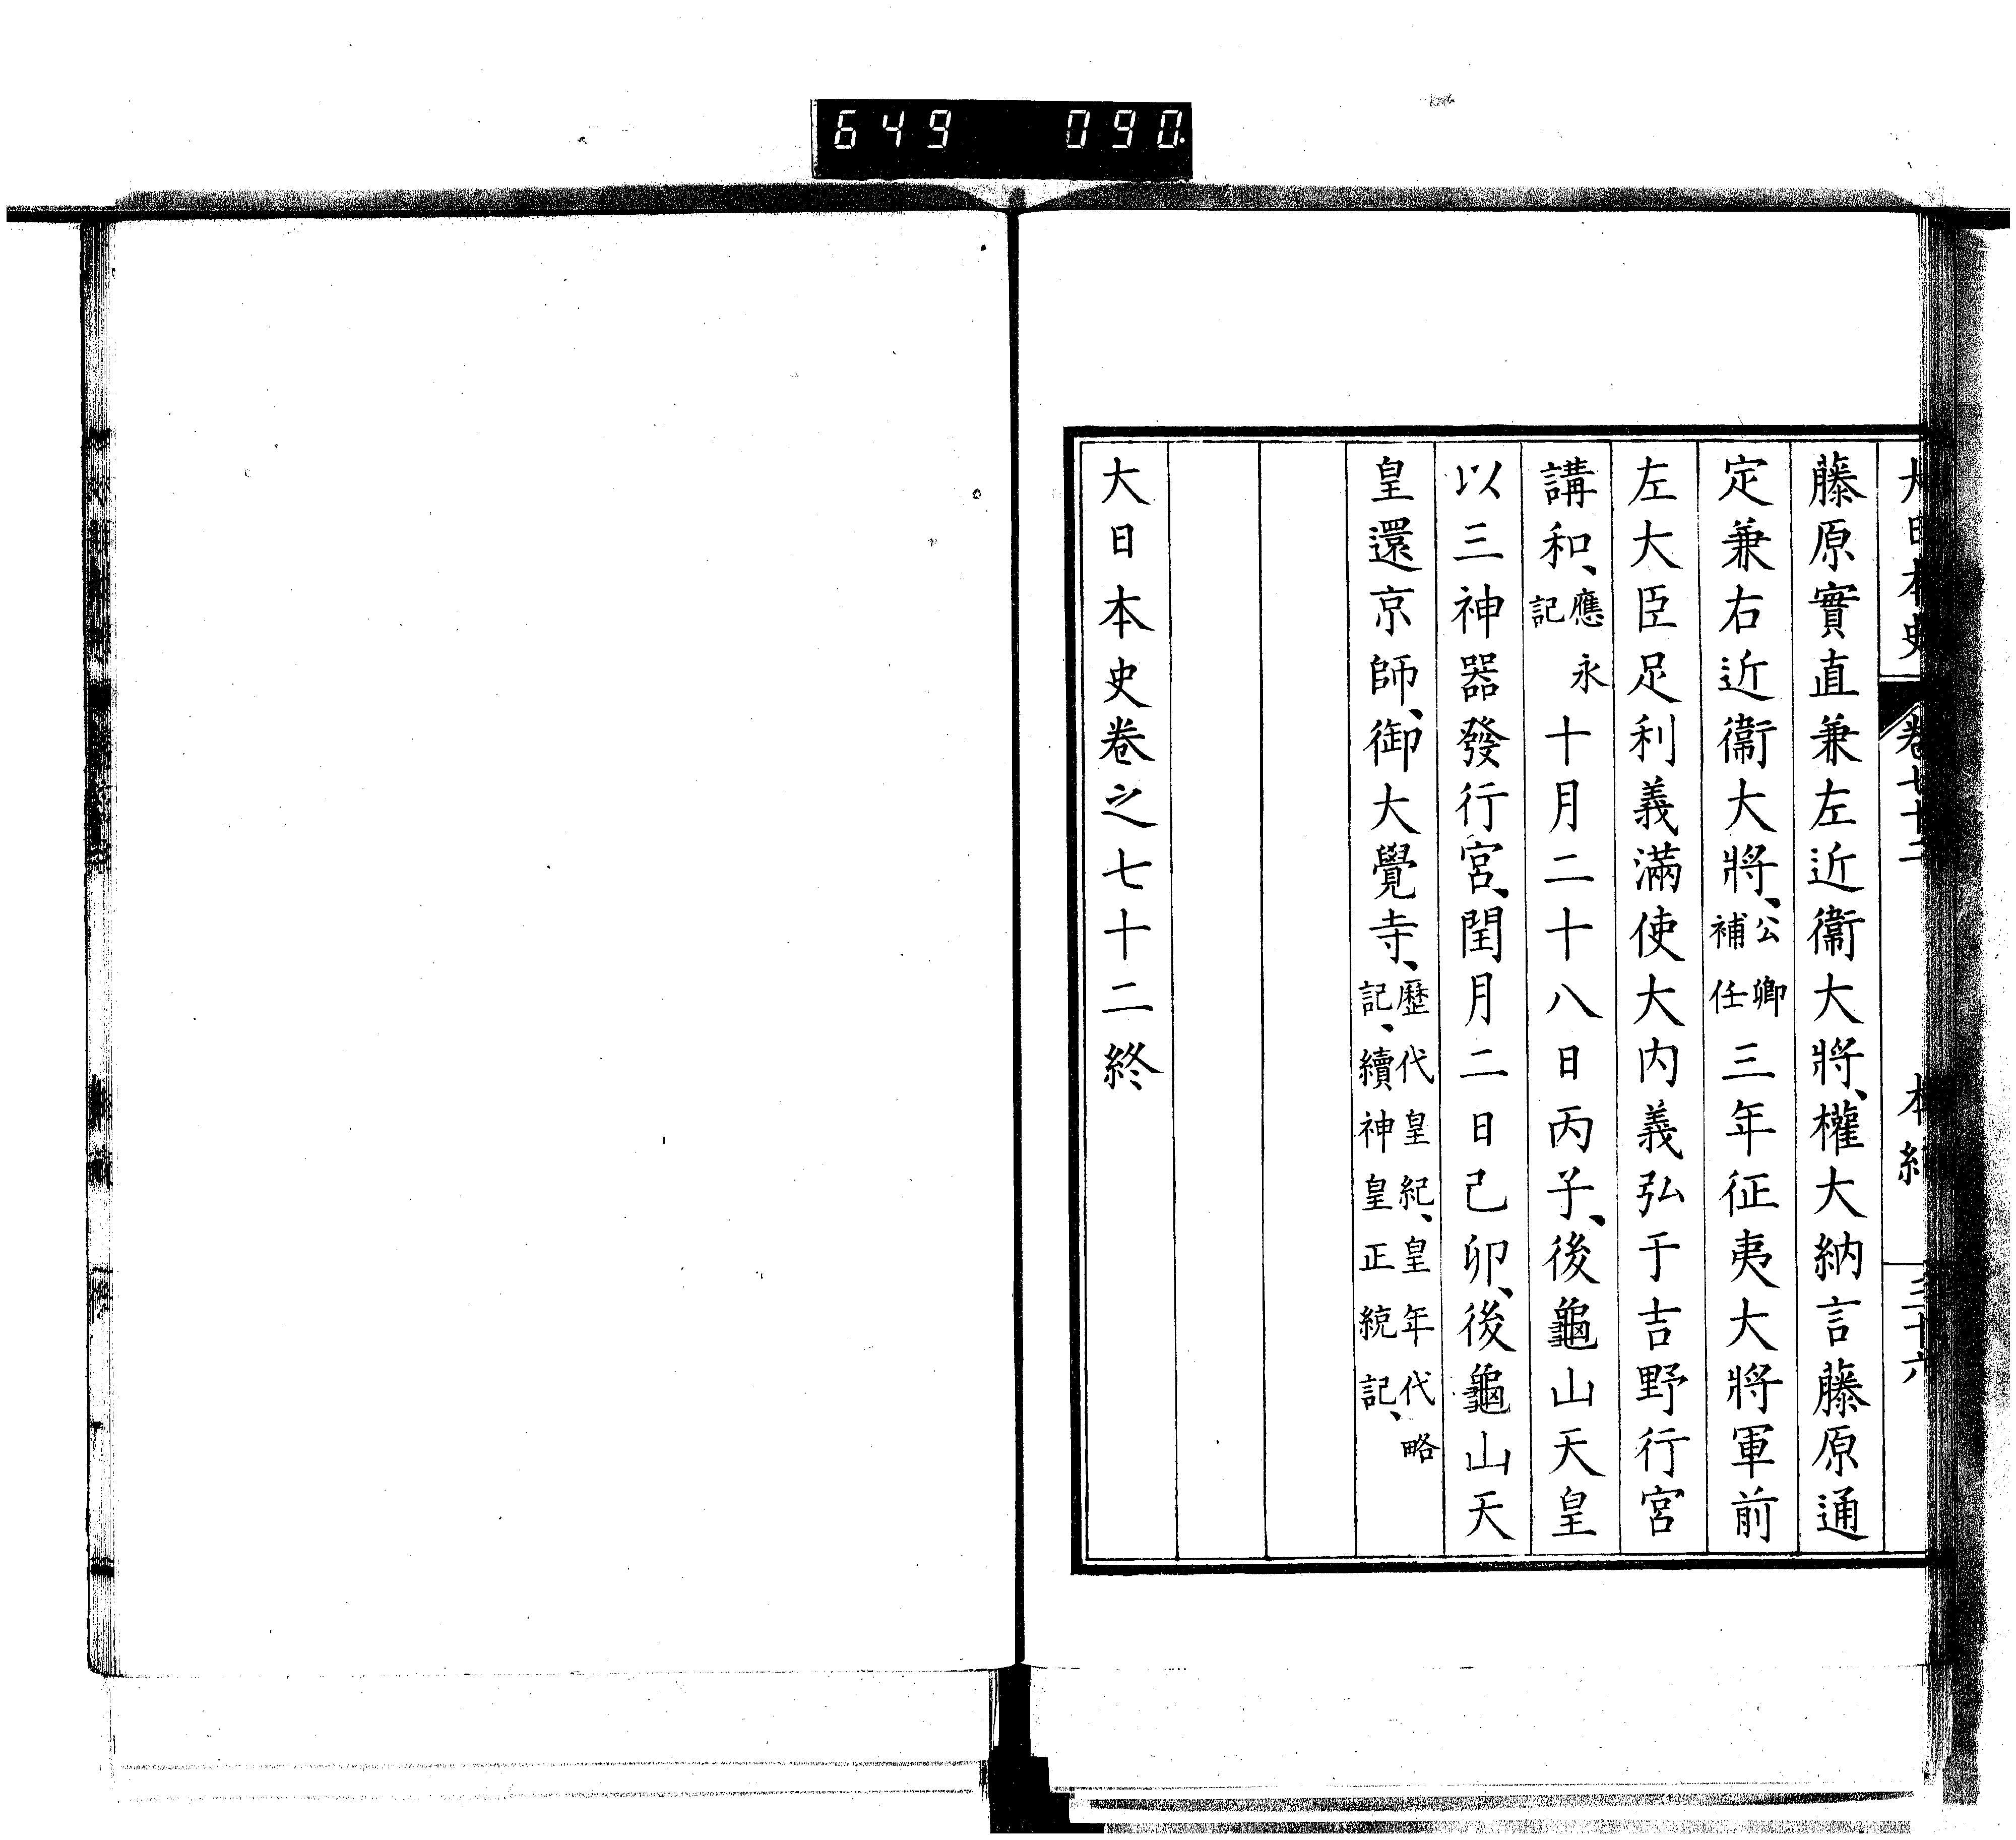 649 090
大日本史 卷七十二 本紀 三十六
藤原實直兼左近衞大將、權大納言藤原通
定兼右近衞大將、公卿補任三年征夷大將軍前
左大臣足利義滿使大内義弘于吉野行宮
講和、應永記十月二十八日丙子、後龜山天皇
以三神器發行宮、閏月二日己卯、後龜山天
皇還京師、御大覺寺、歷代皇紀、皇年代略記、續神皇正統記、
大日本史卷之七十二終